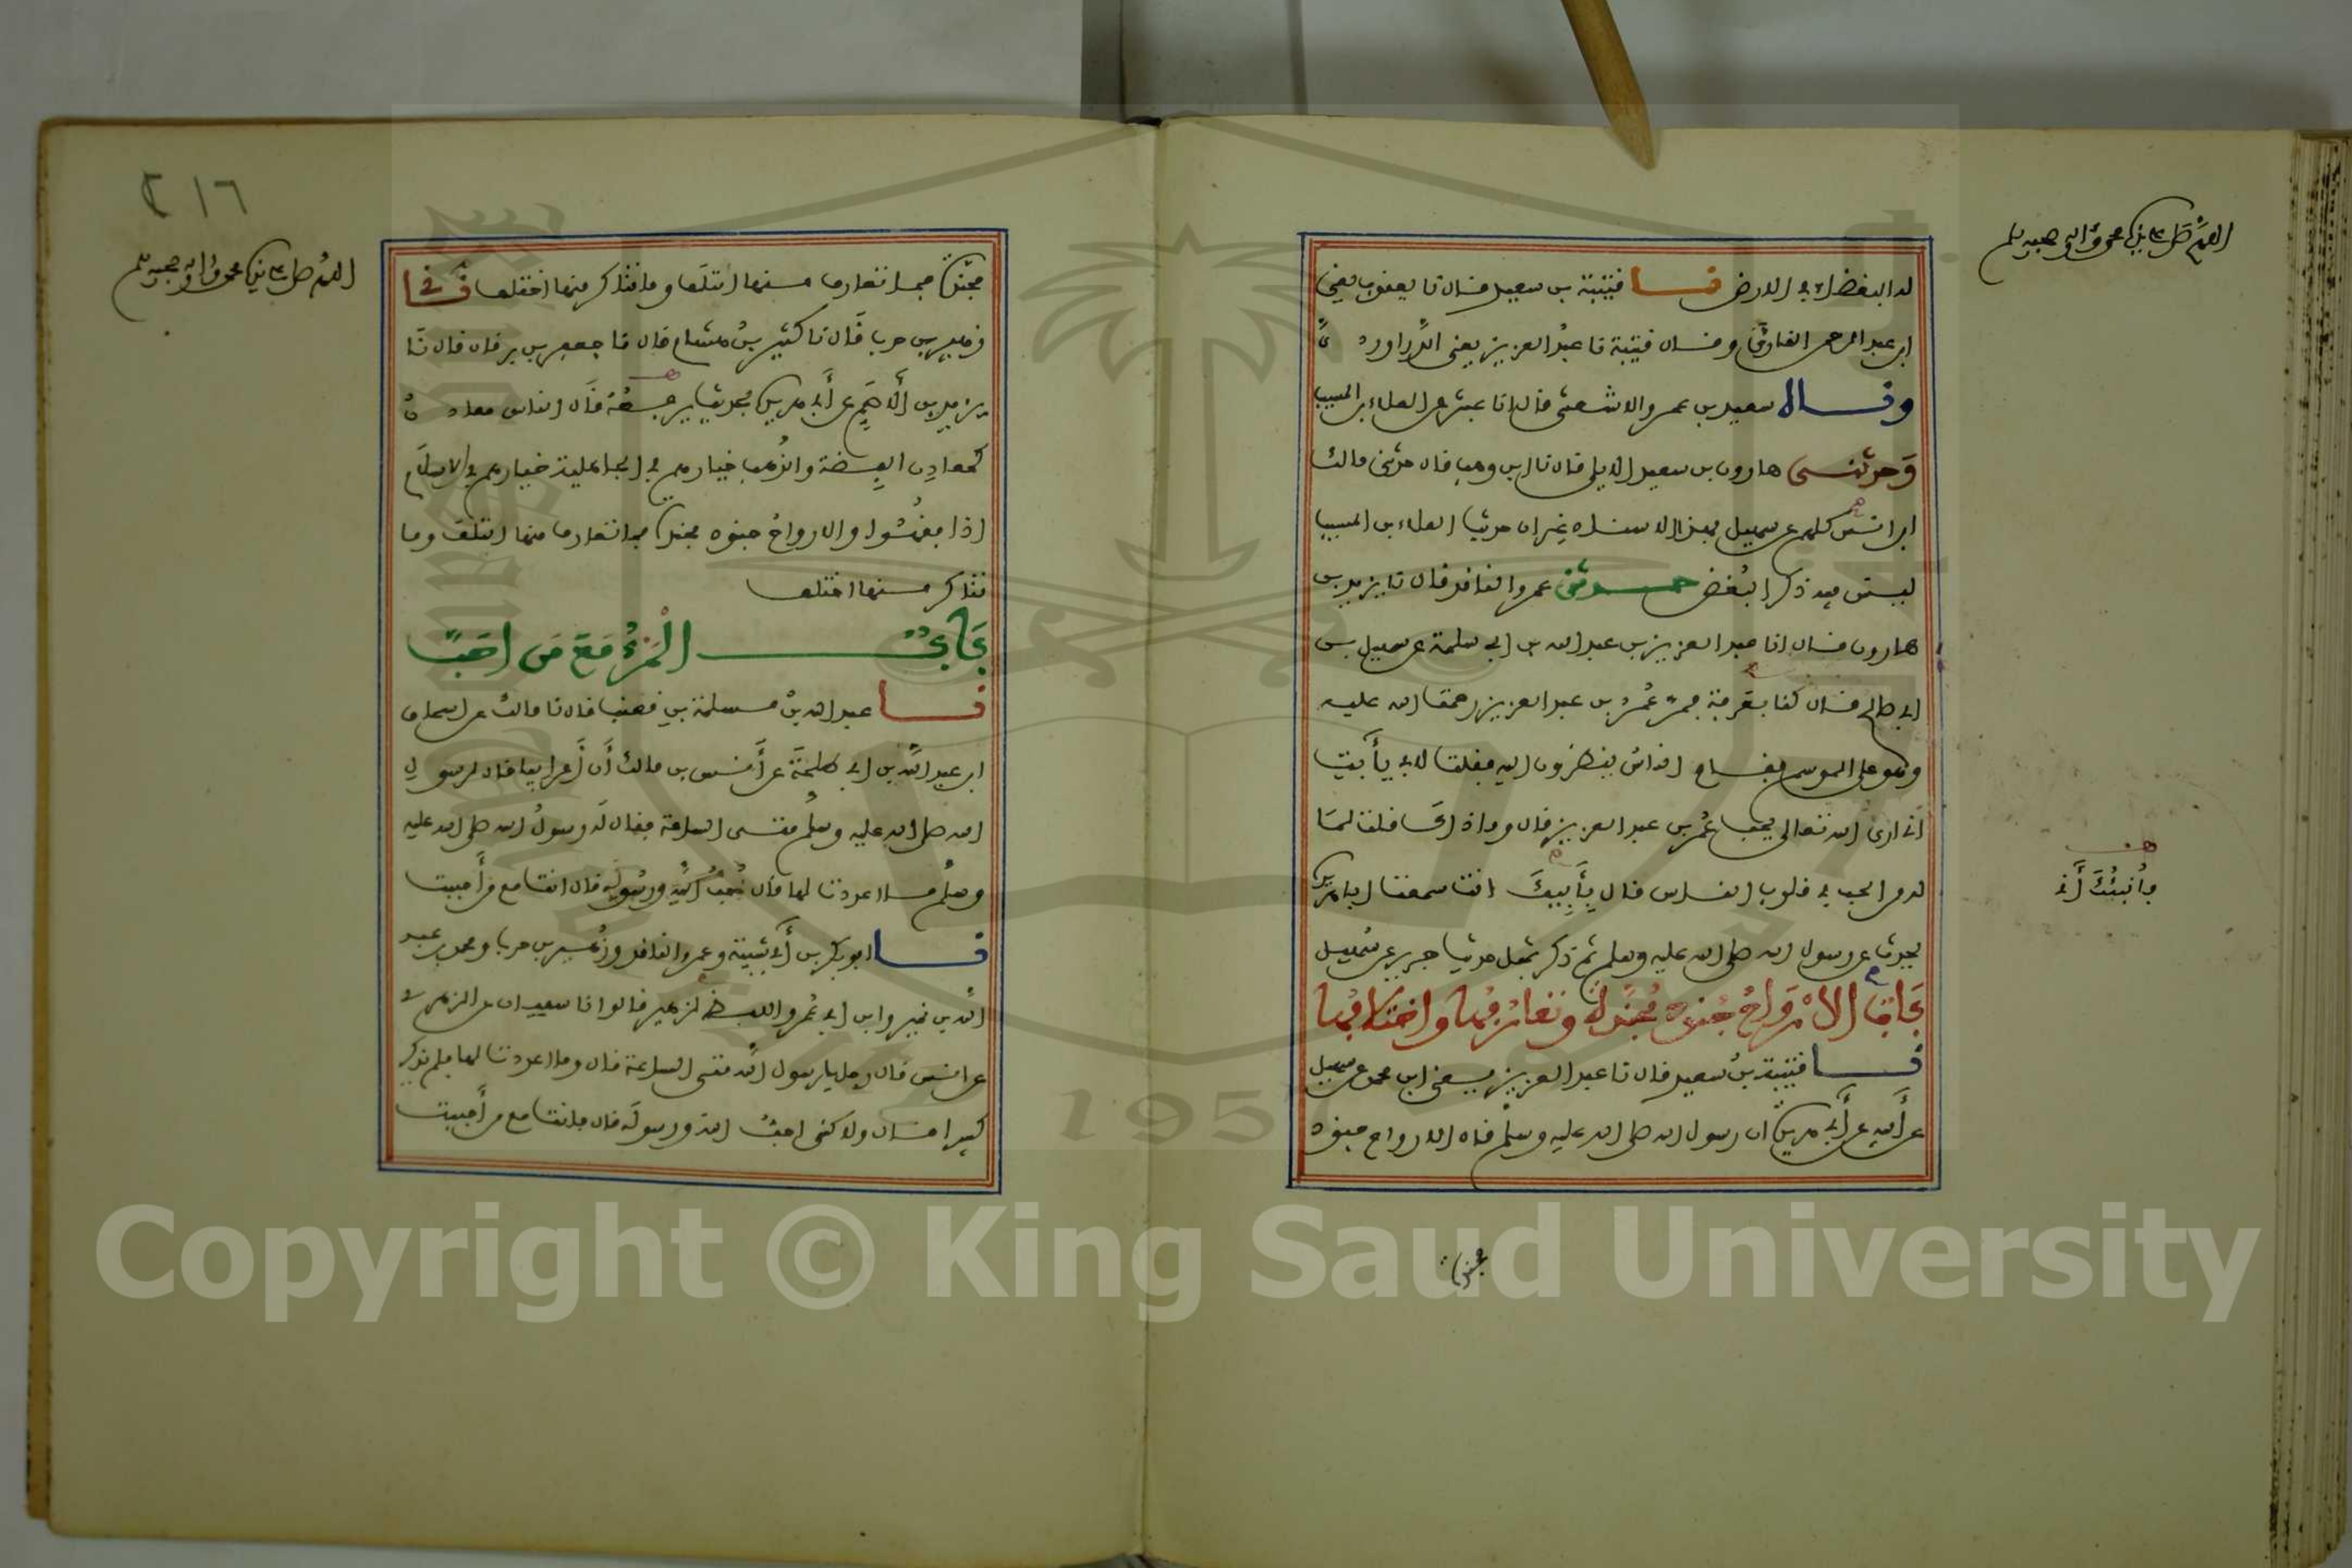 اللهم صل على نبينا محمد وآله وصحبه وسلم
له البغضاء في الارض نا قتيبة بن سعيد قال نا يعقوب يعني
ابن عبد الرحمن القاري وقال قتيبة نا عبد العزيز يعني الدراوردي
وقال سعيد بن عمرو الاشعثي قال انا عبثر عن العلاء بن المسيب
وحدثني هارون بن سعيد الايلي قال نا ابن وهب قال حدثني مالك
ابن انس كلهم عن سهيل بهذا الاسناد غير ان حديث العلاء بن المسيب
ليس فيه ذكر البغض حدثني عمرو الناقد قال نا يزيد بن
هارون قال انا عبد العزيز بن عبد الله بن ابي سلمة عن سهيل بن
ابي صالح قال كنا بعرفة فمر عمر بن عبد العزيز رحمة الله عليه
وهو على الموسم فقام الناس ينظرون اليه فقلت لابي يا أبت
اني ارى الله تعالى يحب عمر بن عبد العزيز قال وما ذاك قلت لما
له من الحب في قلوب الناس قال بأبيك انت سمعت ابا هريرة
يحدث عن رسول الله صلى الله عليه وسلم ثم ذكر بمثل حديث جرير عن سهيل
باب الارواح جنود مجندة وتعارفها واختلافها
نا قتيبة بن سعيد قال نا عبد العزيز يعني ابن محمد عن سهيل
عن أبيه عن أبي هريرة ان رسول الله صلى الله عليه وسلم قال الارواح جنود
مجندة
٢١٦
اللهم صل على نبينا محمد وآله وصحبه وسلم
مجندة فما تعارف منها ائتلف وما تناكر منها اختلف
زهير بن حرب قال نا كثير بن هشام قال نا جعفر بن برقان قال نا
يزيد بن الأصم عن أبي هريرة بحديث يرفعه قال الناس معادن
كمعادن الفضة والذهب خيارهم في الجاهلية خيارهم في الاسلام
اذا فقهوا والارواح جنود مجندة فما تعارف منها ائتلف وما
تناكر منها اختلف
باب المرء مع من احب
نا عبد الله بن مسلمة بن قعنب قال نا مالك عن اسحاق
ابن عبد الله بن ابي طلحة عن أنس بن مالك أن أعرابيا قال لرسول
الله صلى الله عليه وسلم متى الساعة فقال له رسول الله صلى الله عليه
وسلم ما اعددت لها قال حب الله ورسوله قال انت مع من أحببت
نا ابو بكر بن أبي شيبة وعمرو الناقد وزهير بن حرب ومحمد بن عبد
الله بن نمير وابن ابي عمر واللفظ لزهير قالوا نا سفيان عن الزهري
عن انس قال رجل يا رسول الله متى الساعة قال وما اعددت لها فلم يذكر
كبيرا قال ولاكني احب الله ورسوله قال فانت مع من أحببت
Copyright © King Saud University
1957